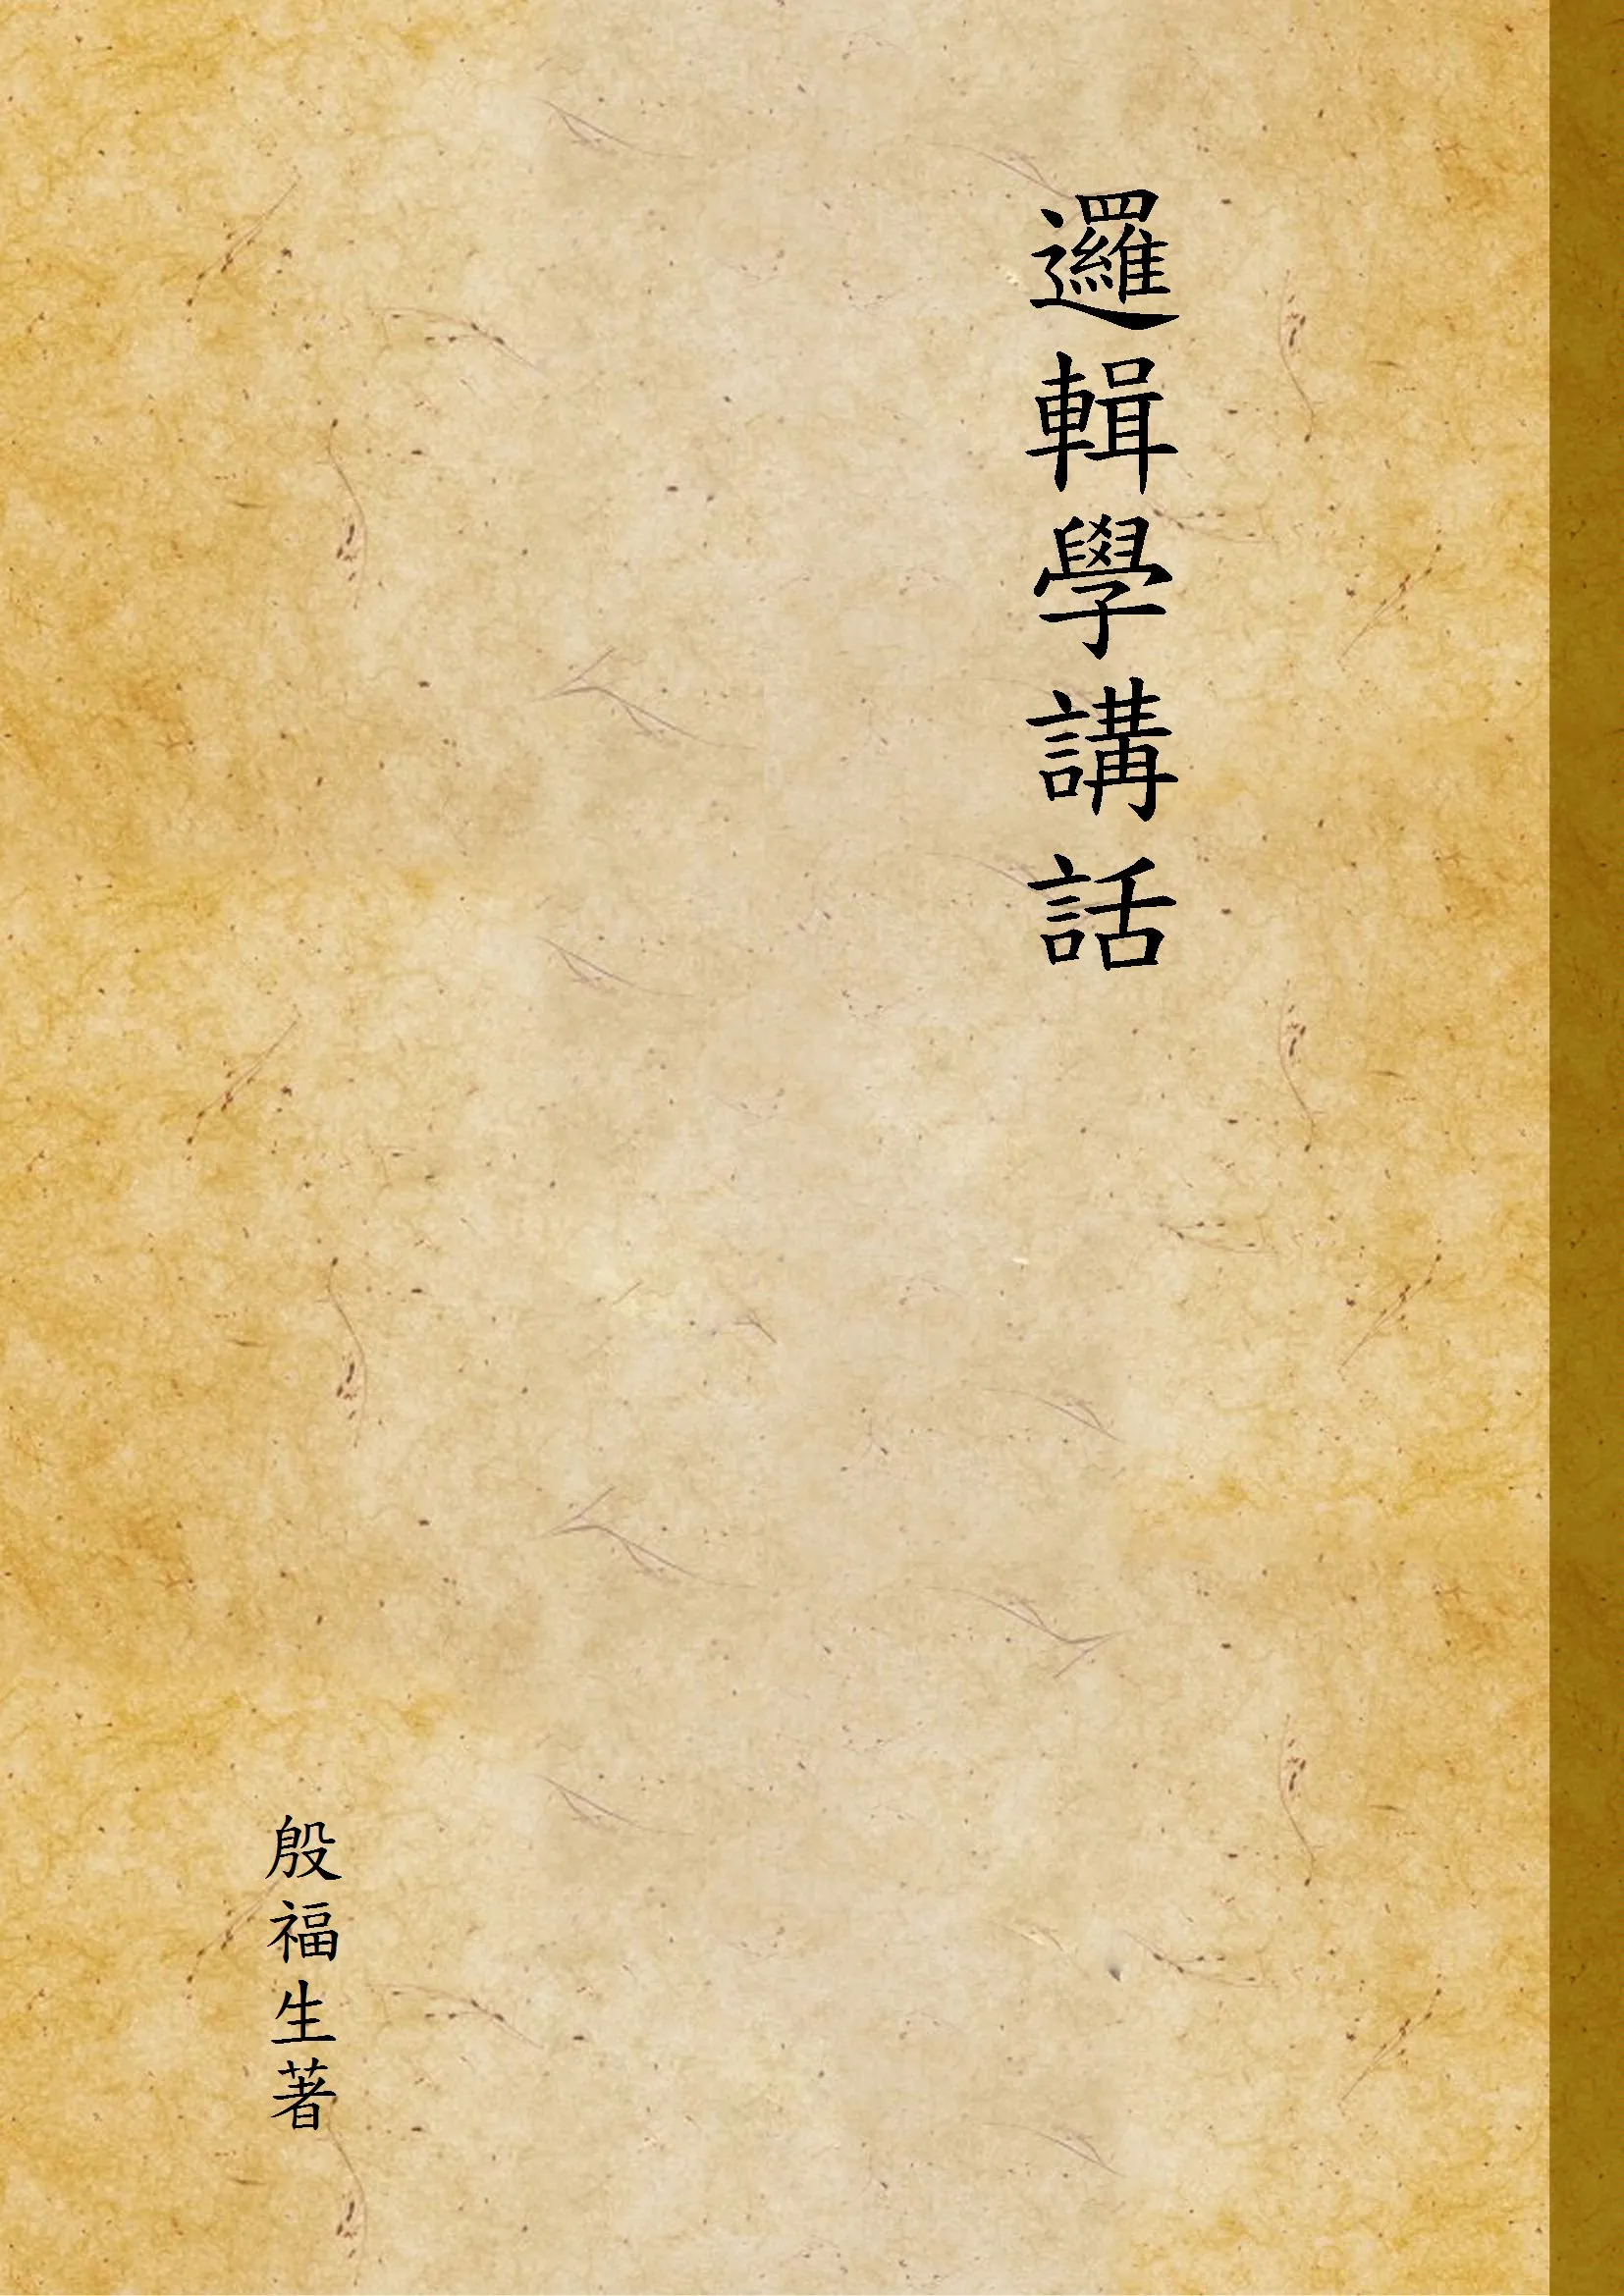 邏輯學講話
殷福生著